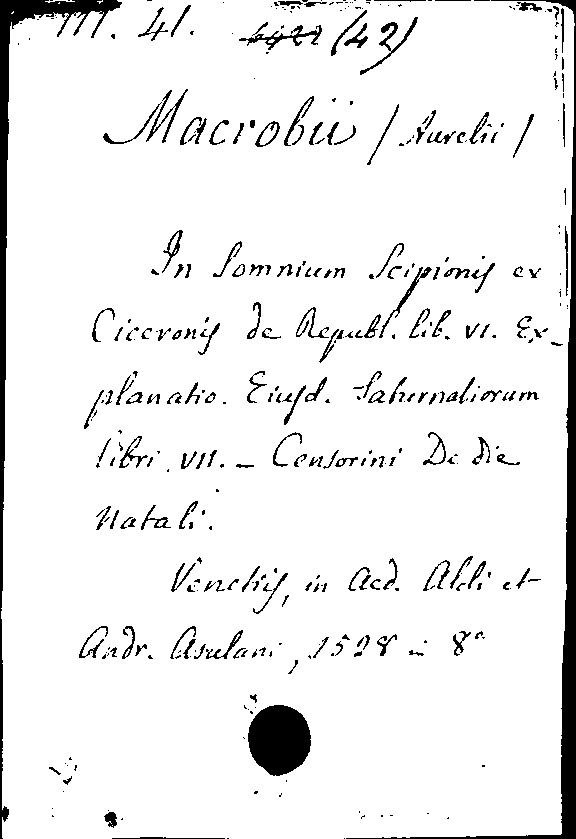 III. 41. 6422 (42)
Macrobii / Aurelii /
In Somnium Scipionis ex
Ciceronis de Republ. lib. VI. Ex-
planatio. Eiusd. Saturnaliorum
libri VII. – Censorini De die
Natali.
Venetiis, in Aed. Aldi et
Andr. Asulani, 1528 in 8°